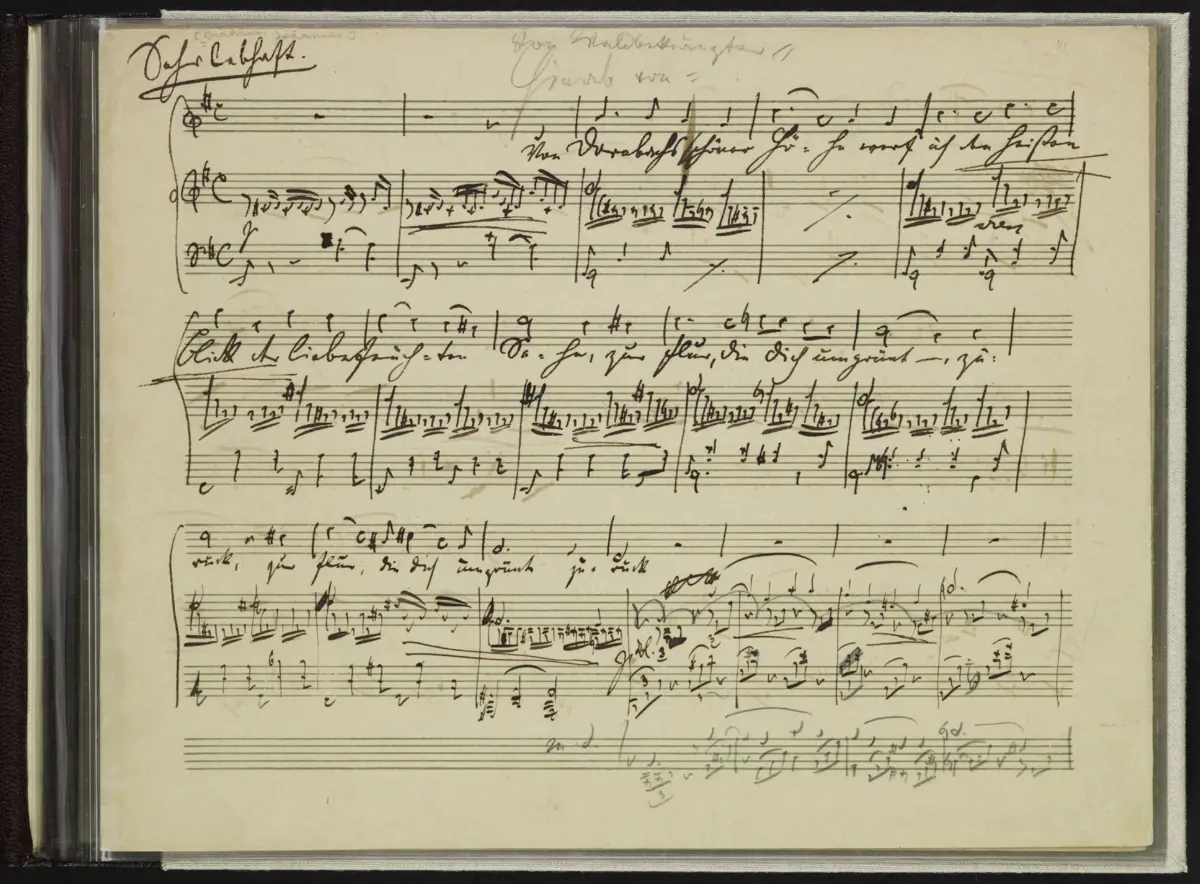 [Brahms, Johannes]
Von Waldbekränzter
Sehr lebhaft.
Von Dornbachs schöner Hö- he werf ich den heißen
Blick der liebefeuch-ten Se- he, zur Flur, die dich umgrünt –, zu-
rück, zur Flur, die dich umgrünt zu- rück
m. d.